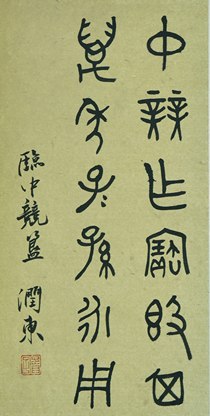 中競乍寶𣪘其
萬年子孫永用
臨中競簋 潤東